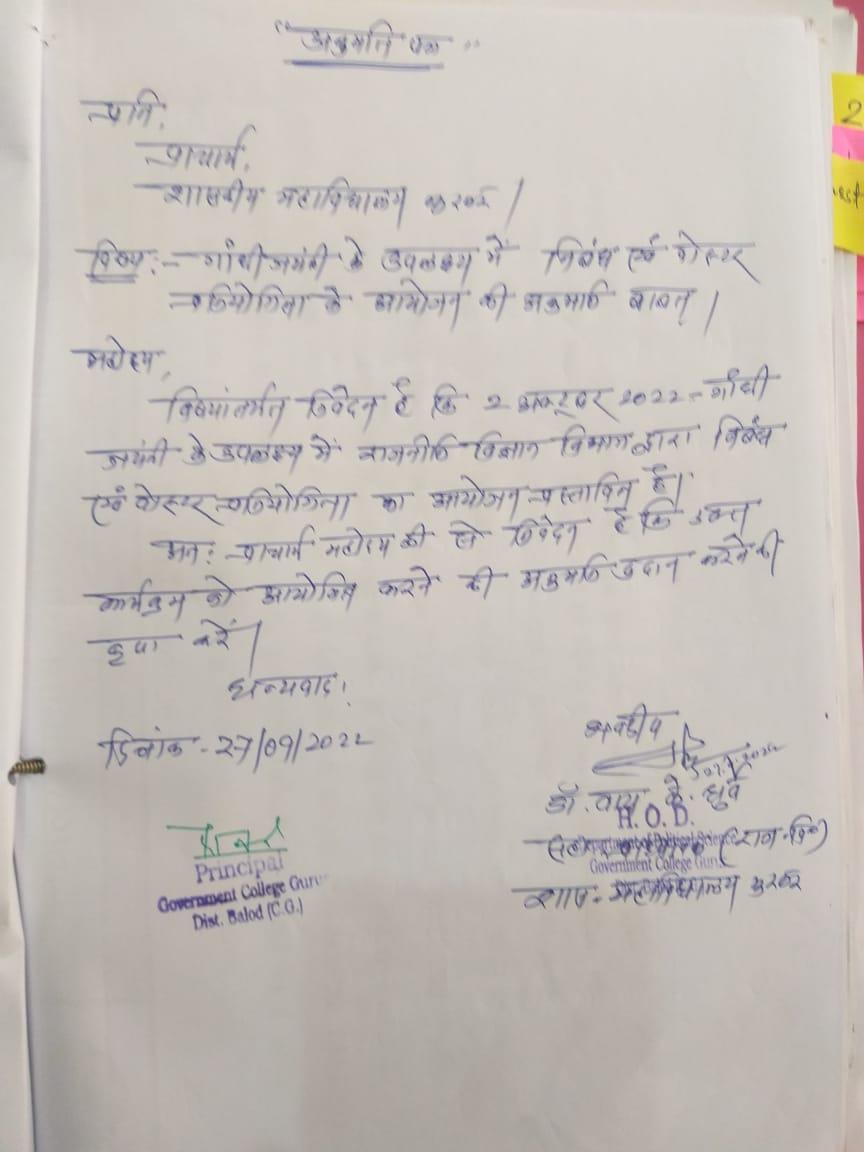 "अनुमति पत्र"
प्रति,
प्राचार्य,
शासकीय महाविद्यालय गुरूर।
विषय:- गांधी जयंती के उपलक्ष्य में निबंध एवं पोस्टर
प्रतियोगिता के आयोजन की अनुमति बाबत्।
महोदय,
विषयांतर्गत निवेदन है कि 2 अक्टूबर 2022 - गाँधी
जयंती के उपलक्ष्य में राजनीति विज्ञान विभाग द्वारा निबंध
एवं पोस्टर प्रतियोगिता का आयोजन प्रस्तावित है।
अतः प्राचार्य महोदय जी से निवेदन है कि उक्त
कार्यक्रम को आयोजित करने की अनुमति प्रदान करने की
कृपा करें।
धन्यवाद!
दिनांक - 27/09/2022
भवदीय
डॉ. वाय. के. ध्रुव
H. O. D.
Department of Political Science
(राज. वि.)
Government College
शास. महाविद्यालय गुरूर
Principal
Government College Gurur
Dist. Balod (C.G.)
2